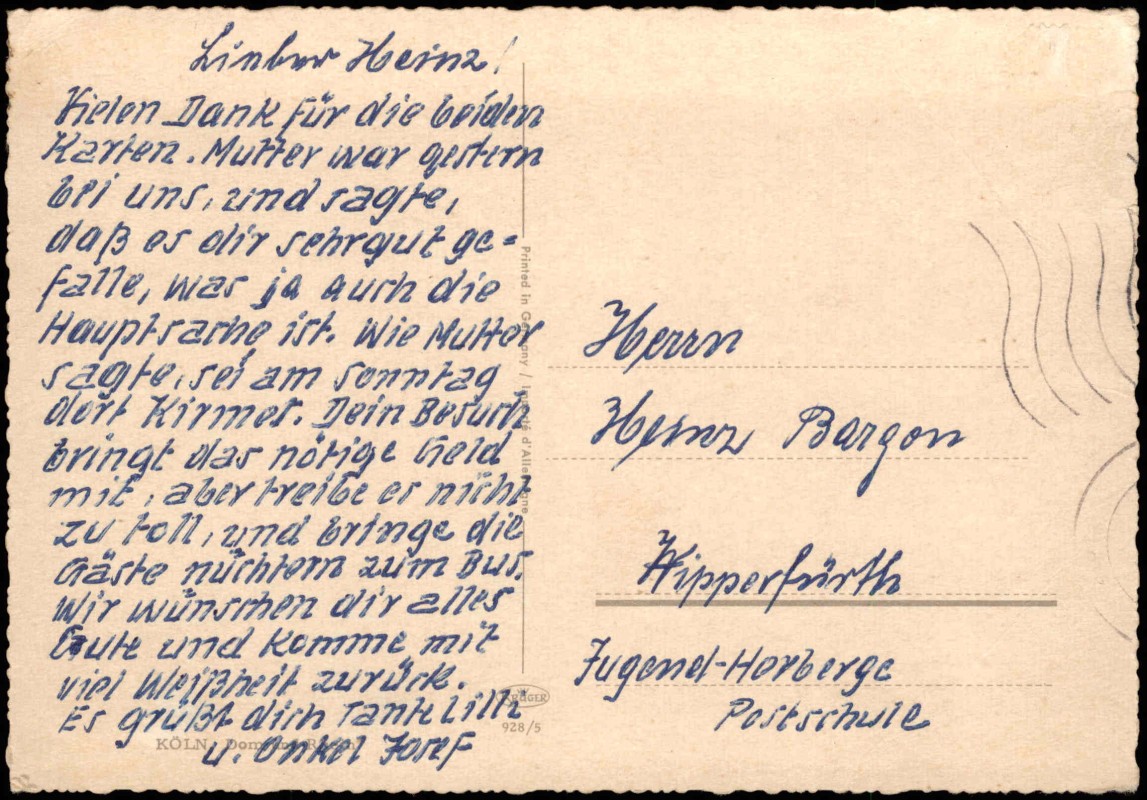 Lieber Heinz!
Vielen Dank für die beiden
Karten. Mutter war gestern
bei uns, und sagte,
daß es dir sehr gut ge=
falle, was ja auch die
Hauptsache ist. Wie Mutter
sagte, sei am Sonntag
dort Kirmes. Dein Besuch
bringt das nötige Geld
mit, aber treibe es nicht
zu toll, und bringe die
Gäste nüchtern zum Bus.
Wir wünschen dir alles
Gute und komme mit
viel Weißheit zurück.
Es grüßt dich Tante Lilli
u. Onkel Josef
KÖLN, Dom
Printed in Germany / Imprimé d'Allemagne
KRÜGER
928/5
Herrn
Heinz Bargon
Wipperfürth
Jugend-Herberge
Postschule